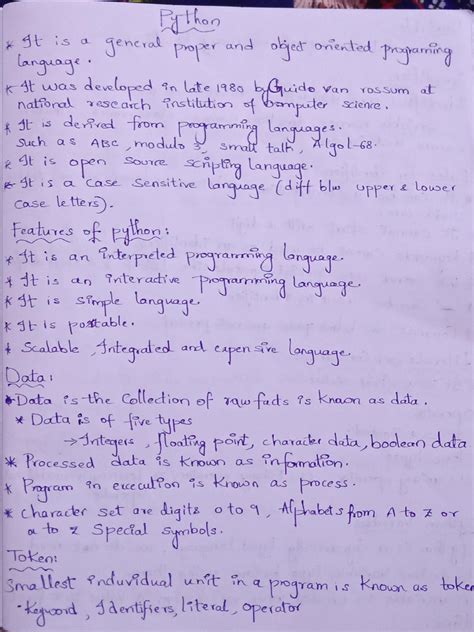 Python
* It is a general proper and object oriented programing
language.
* It was developed in late 1980 by Guido van rossum at
national research institution of computer science.
* It is derived from programming languages.
such as ABC, modulo 3, small talk, Algol-68.
* It is open source scripting language.
* It is a case sensitive language (diff b/w upper & lower
case letters).
Features of python:
* It is an interpreted programming language.
* It is an interactive programming language.
* It is simple language.
* It is portable.
* Scalable, Integrated and expensive language.
Data:
* Data is the collection of raw facts is known as data.
* Data is of five types
→ Integers, floating point, character data, boolean data
* Processed data is known as information.
* Program in execution is known as process.
* character set are digits 0 to 9, Alphabets from A to Z or
a to z Special symbols.
Token:
Smallest induvidual unit in a program is known as token
• Keyword, Identifiers, literal, operator